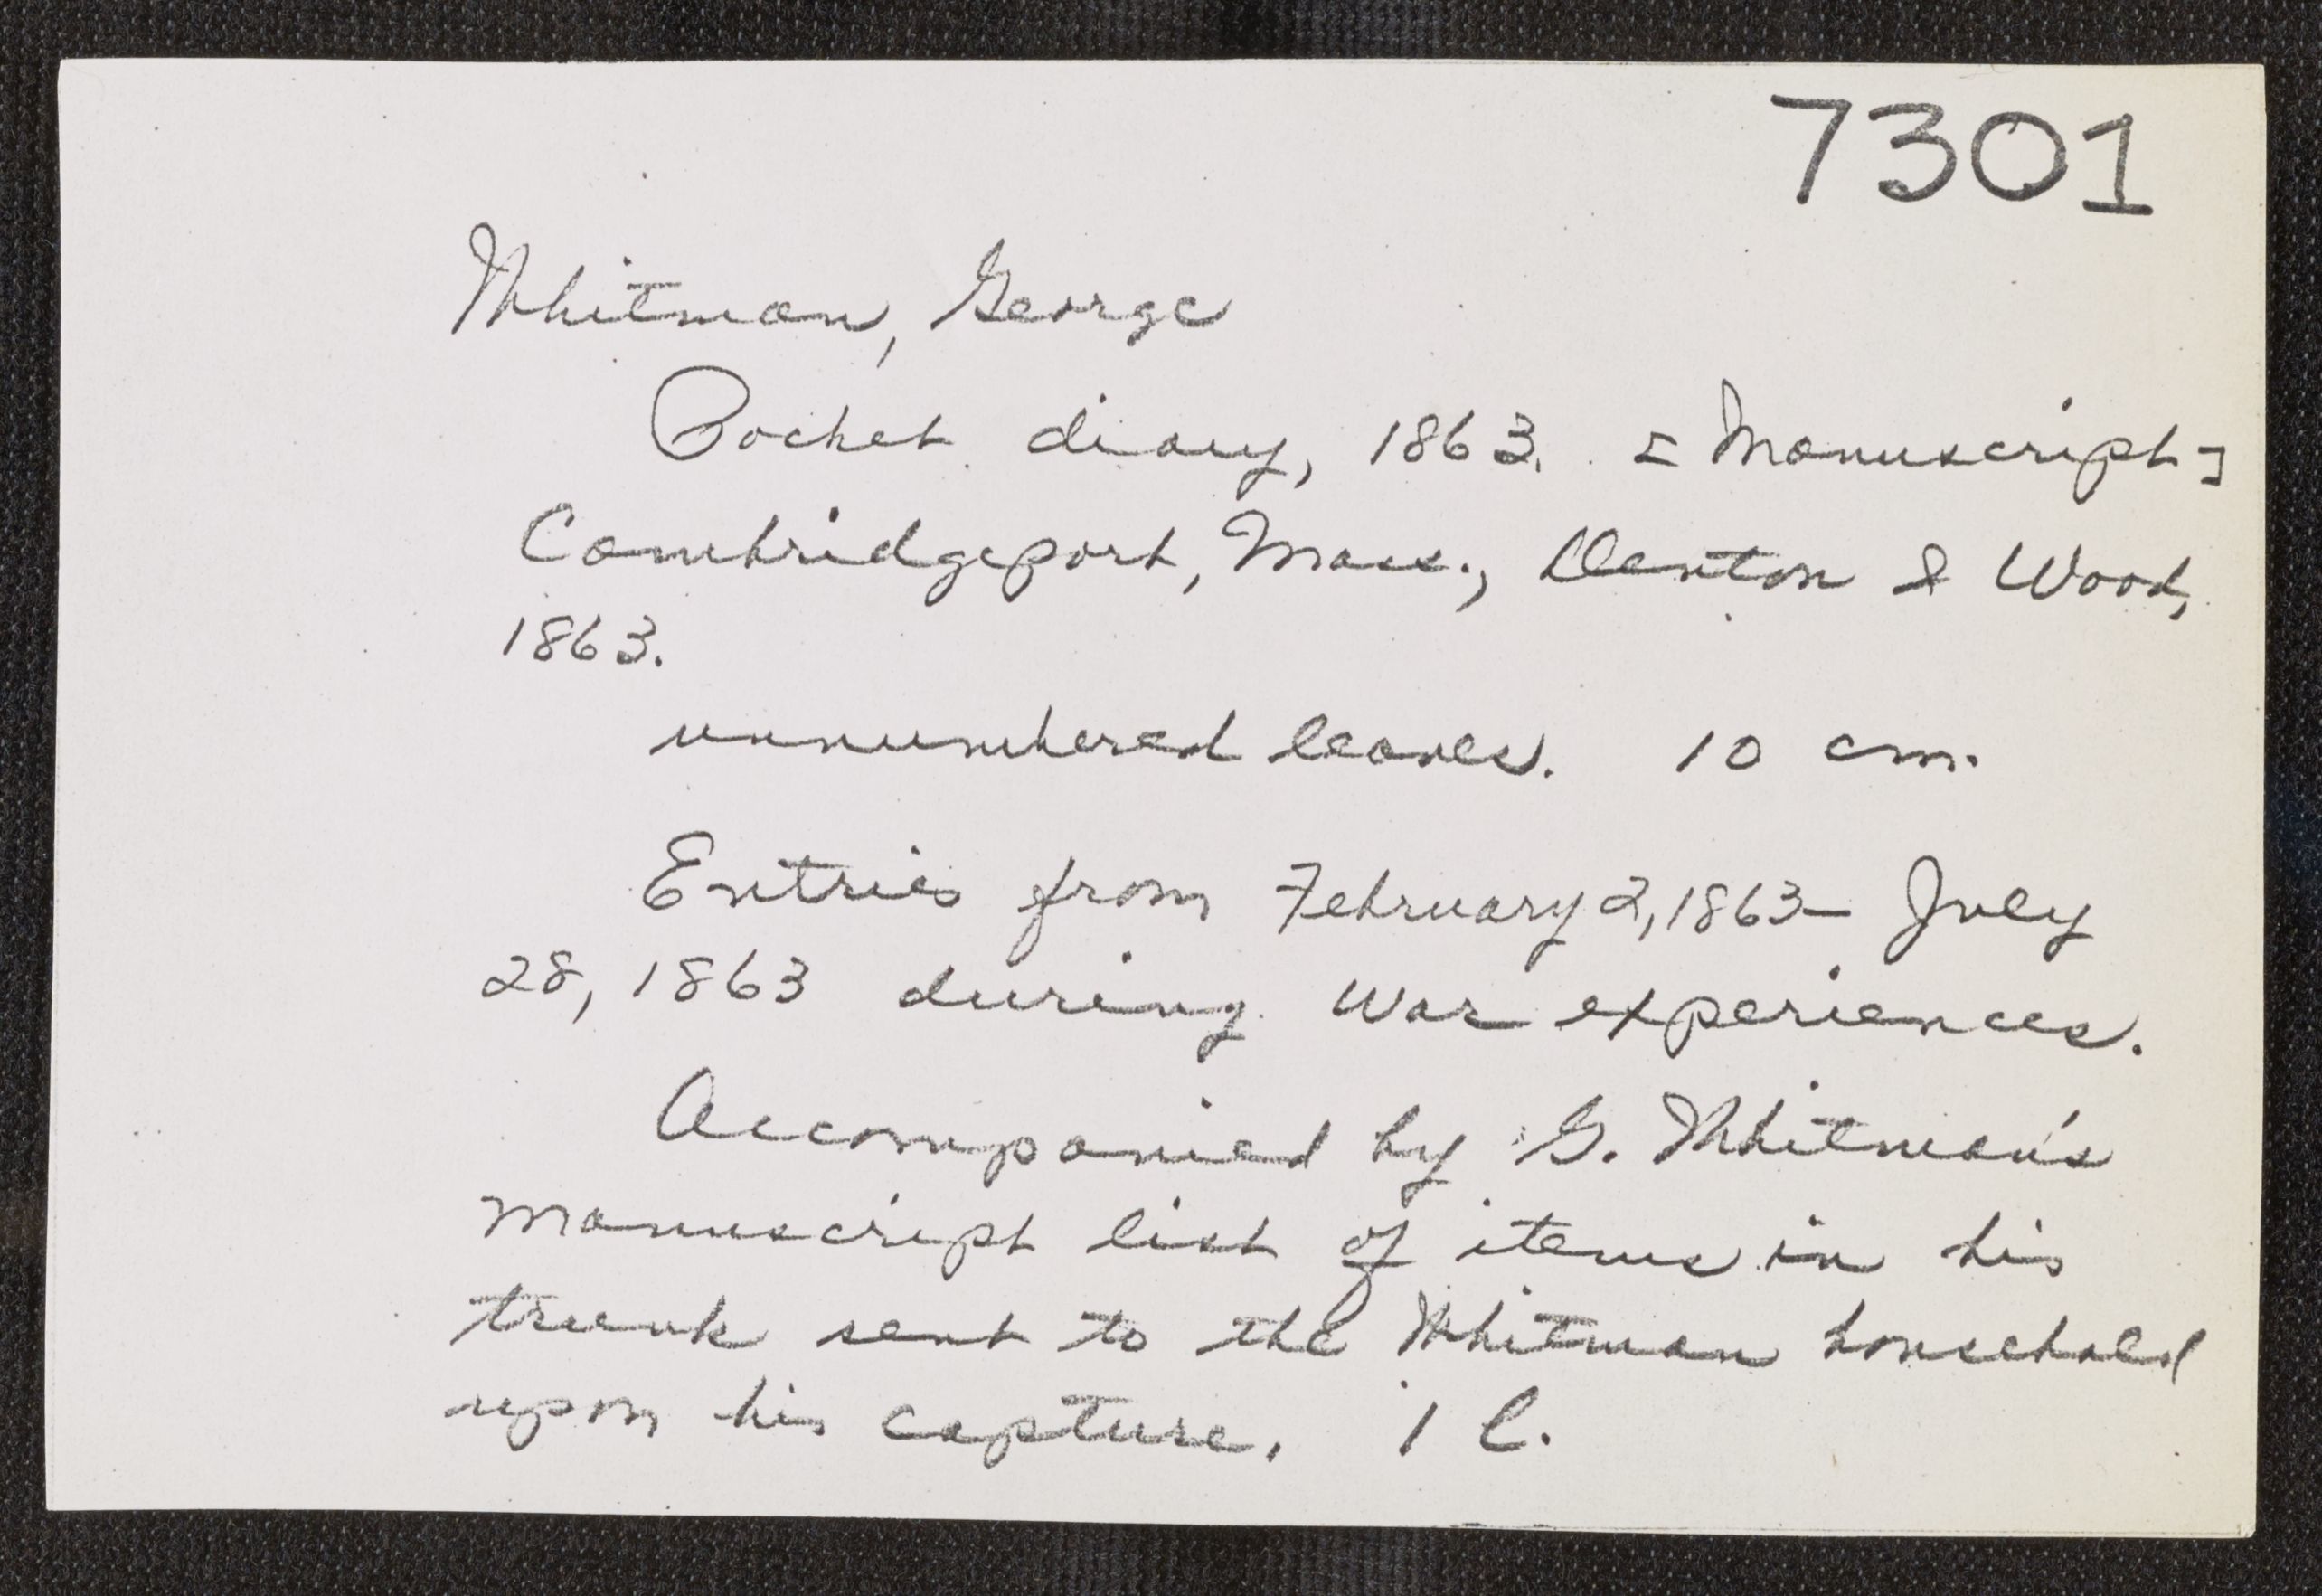 7301
Whitman, George
Pocket diary, 1863. [Manuscript]
Cambridgeport, Mass., Denton & Wood,
1863.
unnumbered leaves. 10 cm.
Entries from February 2, 1863 - July
28, 1863 during war experiences.
Accompanied by G. Whitman's
manuscript list of items in his
trunk sent to the Whitman household
upon his capture. 1 l.